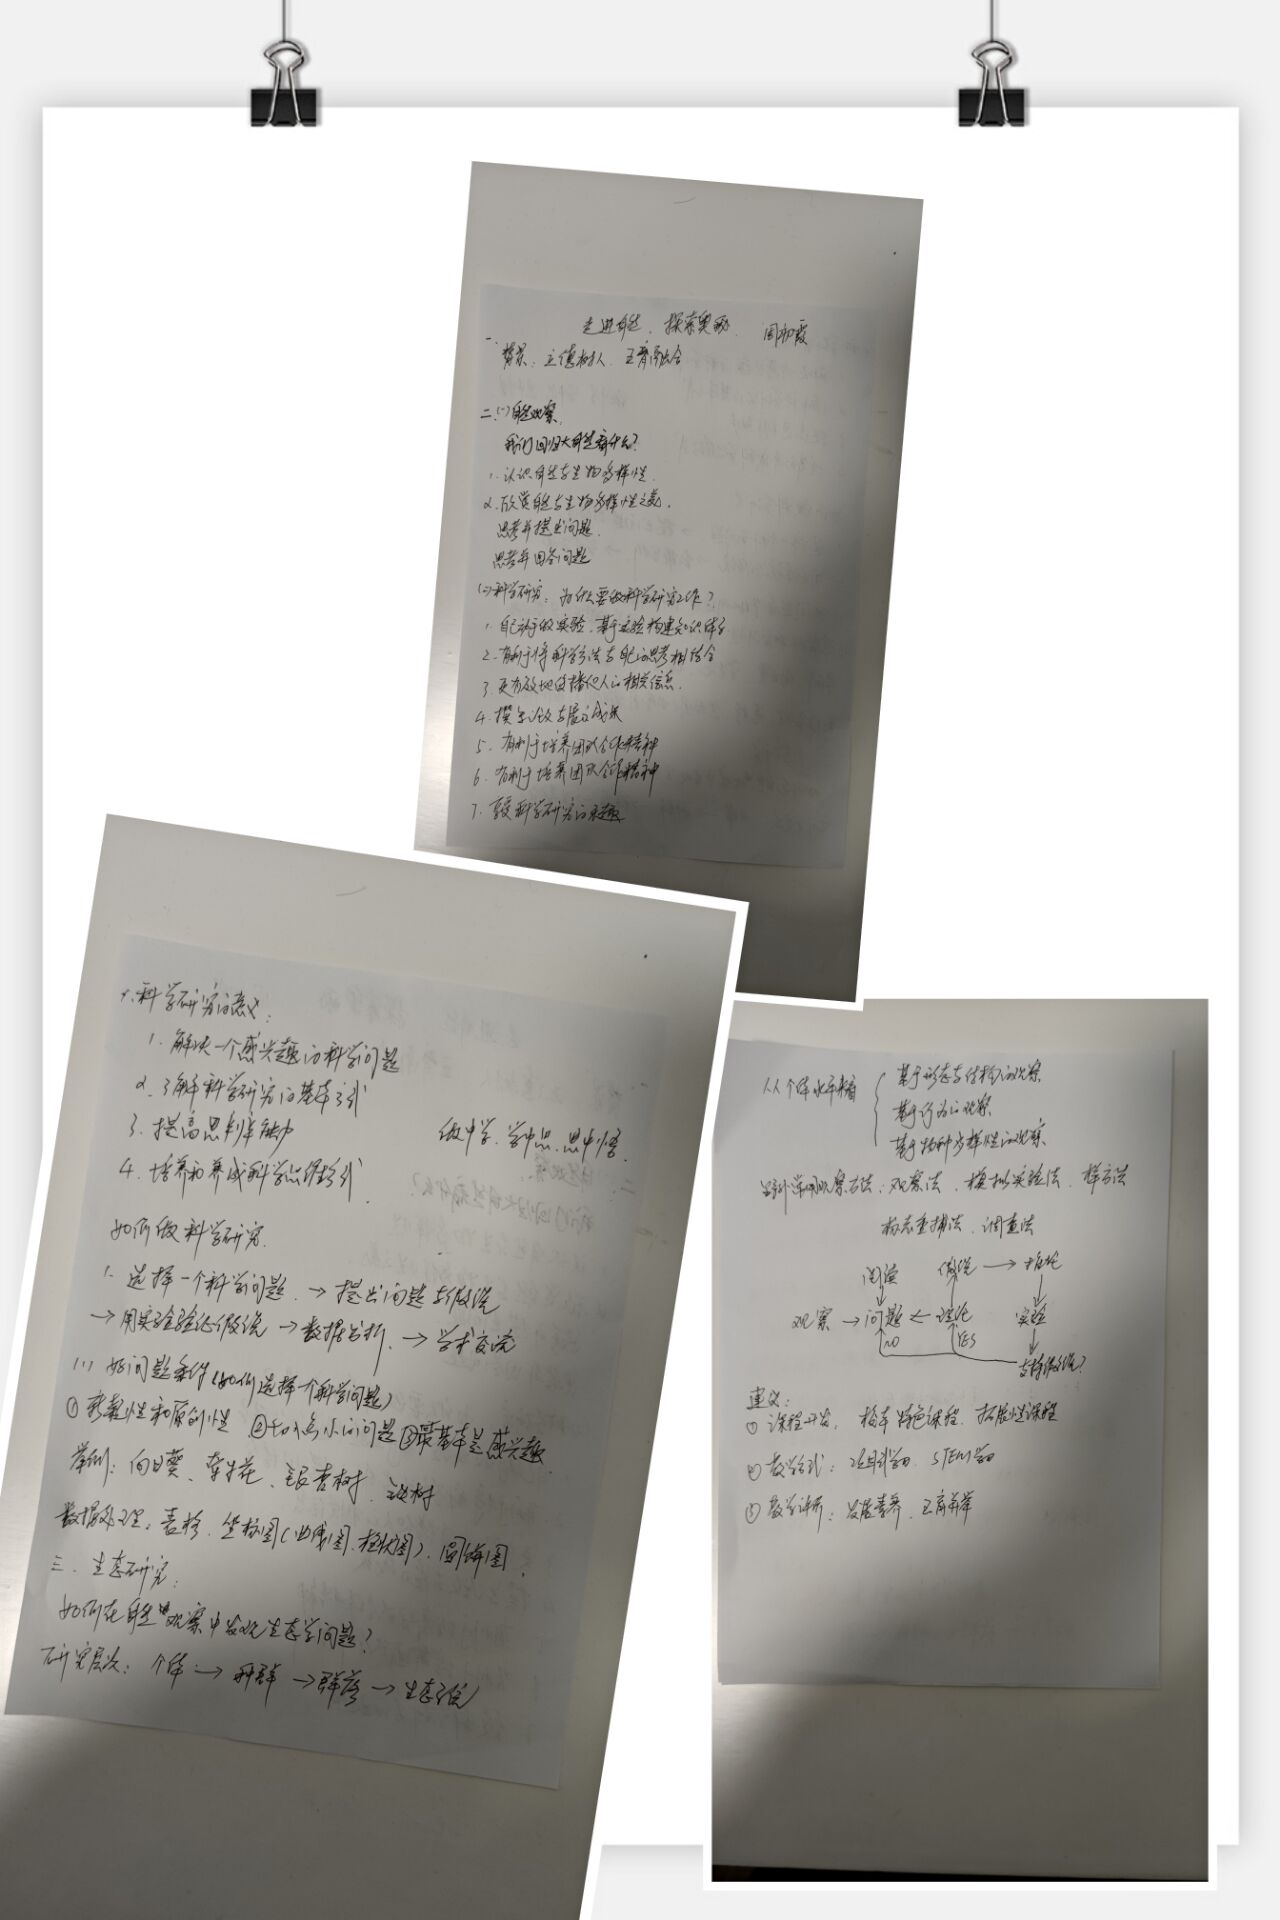 走进自然、探索奥秘 周初霞
一、
背景：立德树人、五育融合
二、(一)自然观察
我们回归大自然看什么？
1. 认识自然与生物多样性
2. 欣赏自然与生物多样性之美
思考并提出问题
思考并回答问题
(二)科学研究：为什么要做科学研究工作？
1. 自己动手做实验，基于实验构建知识体系
2. 有利于将科学方法与自己的思考相结合
3. 更有效地传播他人的相关信息
4. 撰写论文与展示成果
5. 有利于培养团队合作精神
6. 有利于培养团队合作精神
7. 享受科学研究的乐趣
科学研究的意义：
1. 解决一个感兴趣的科学问题
2. 了解科学研究的基本方式
3. 提高思判能力 做中学、学中思、思中悟
4. 培养和养成科学思维形式
如何做科学研究
1. 选择一个科学问题 → 提出问题与假说
→ 用实验验证假说 → 数据分析 → 学术交流
(1) 好问题条件(如何选择一个科学问题)
① 新颖性和原创性 ②切小点小的问题 ③最基本是感兴趣
举例：向日葵、牵牛花、银杏树、
数据处理：表格、坐标图(曲线图、柱状图)、圆饼图
三、生态研究：
如何在自然观察中发现生态学问题？
研究层次：个体 → 种群 → 群落 → 生态系统
从个体水平来看
基于形态与结构的观察
基于行为的观察
基于物种多样性的观察
常用观察方法：观察法、模拟实验法、样方法
标志重捕法、调查法
阅读 假说 → 推论
观察 → 问题 ← 理论 实验
NO YES
支持假说？
建议：
① 课程开发：校本特色课程、拓展性课程
② 教学方式：项目式学习、STEM学习
③ 教学评价：发展素养、五育并举